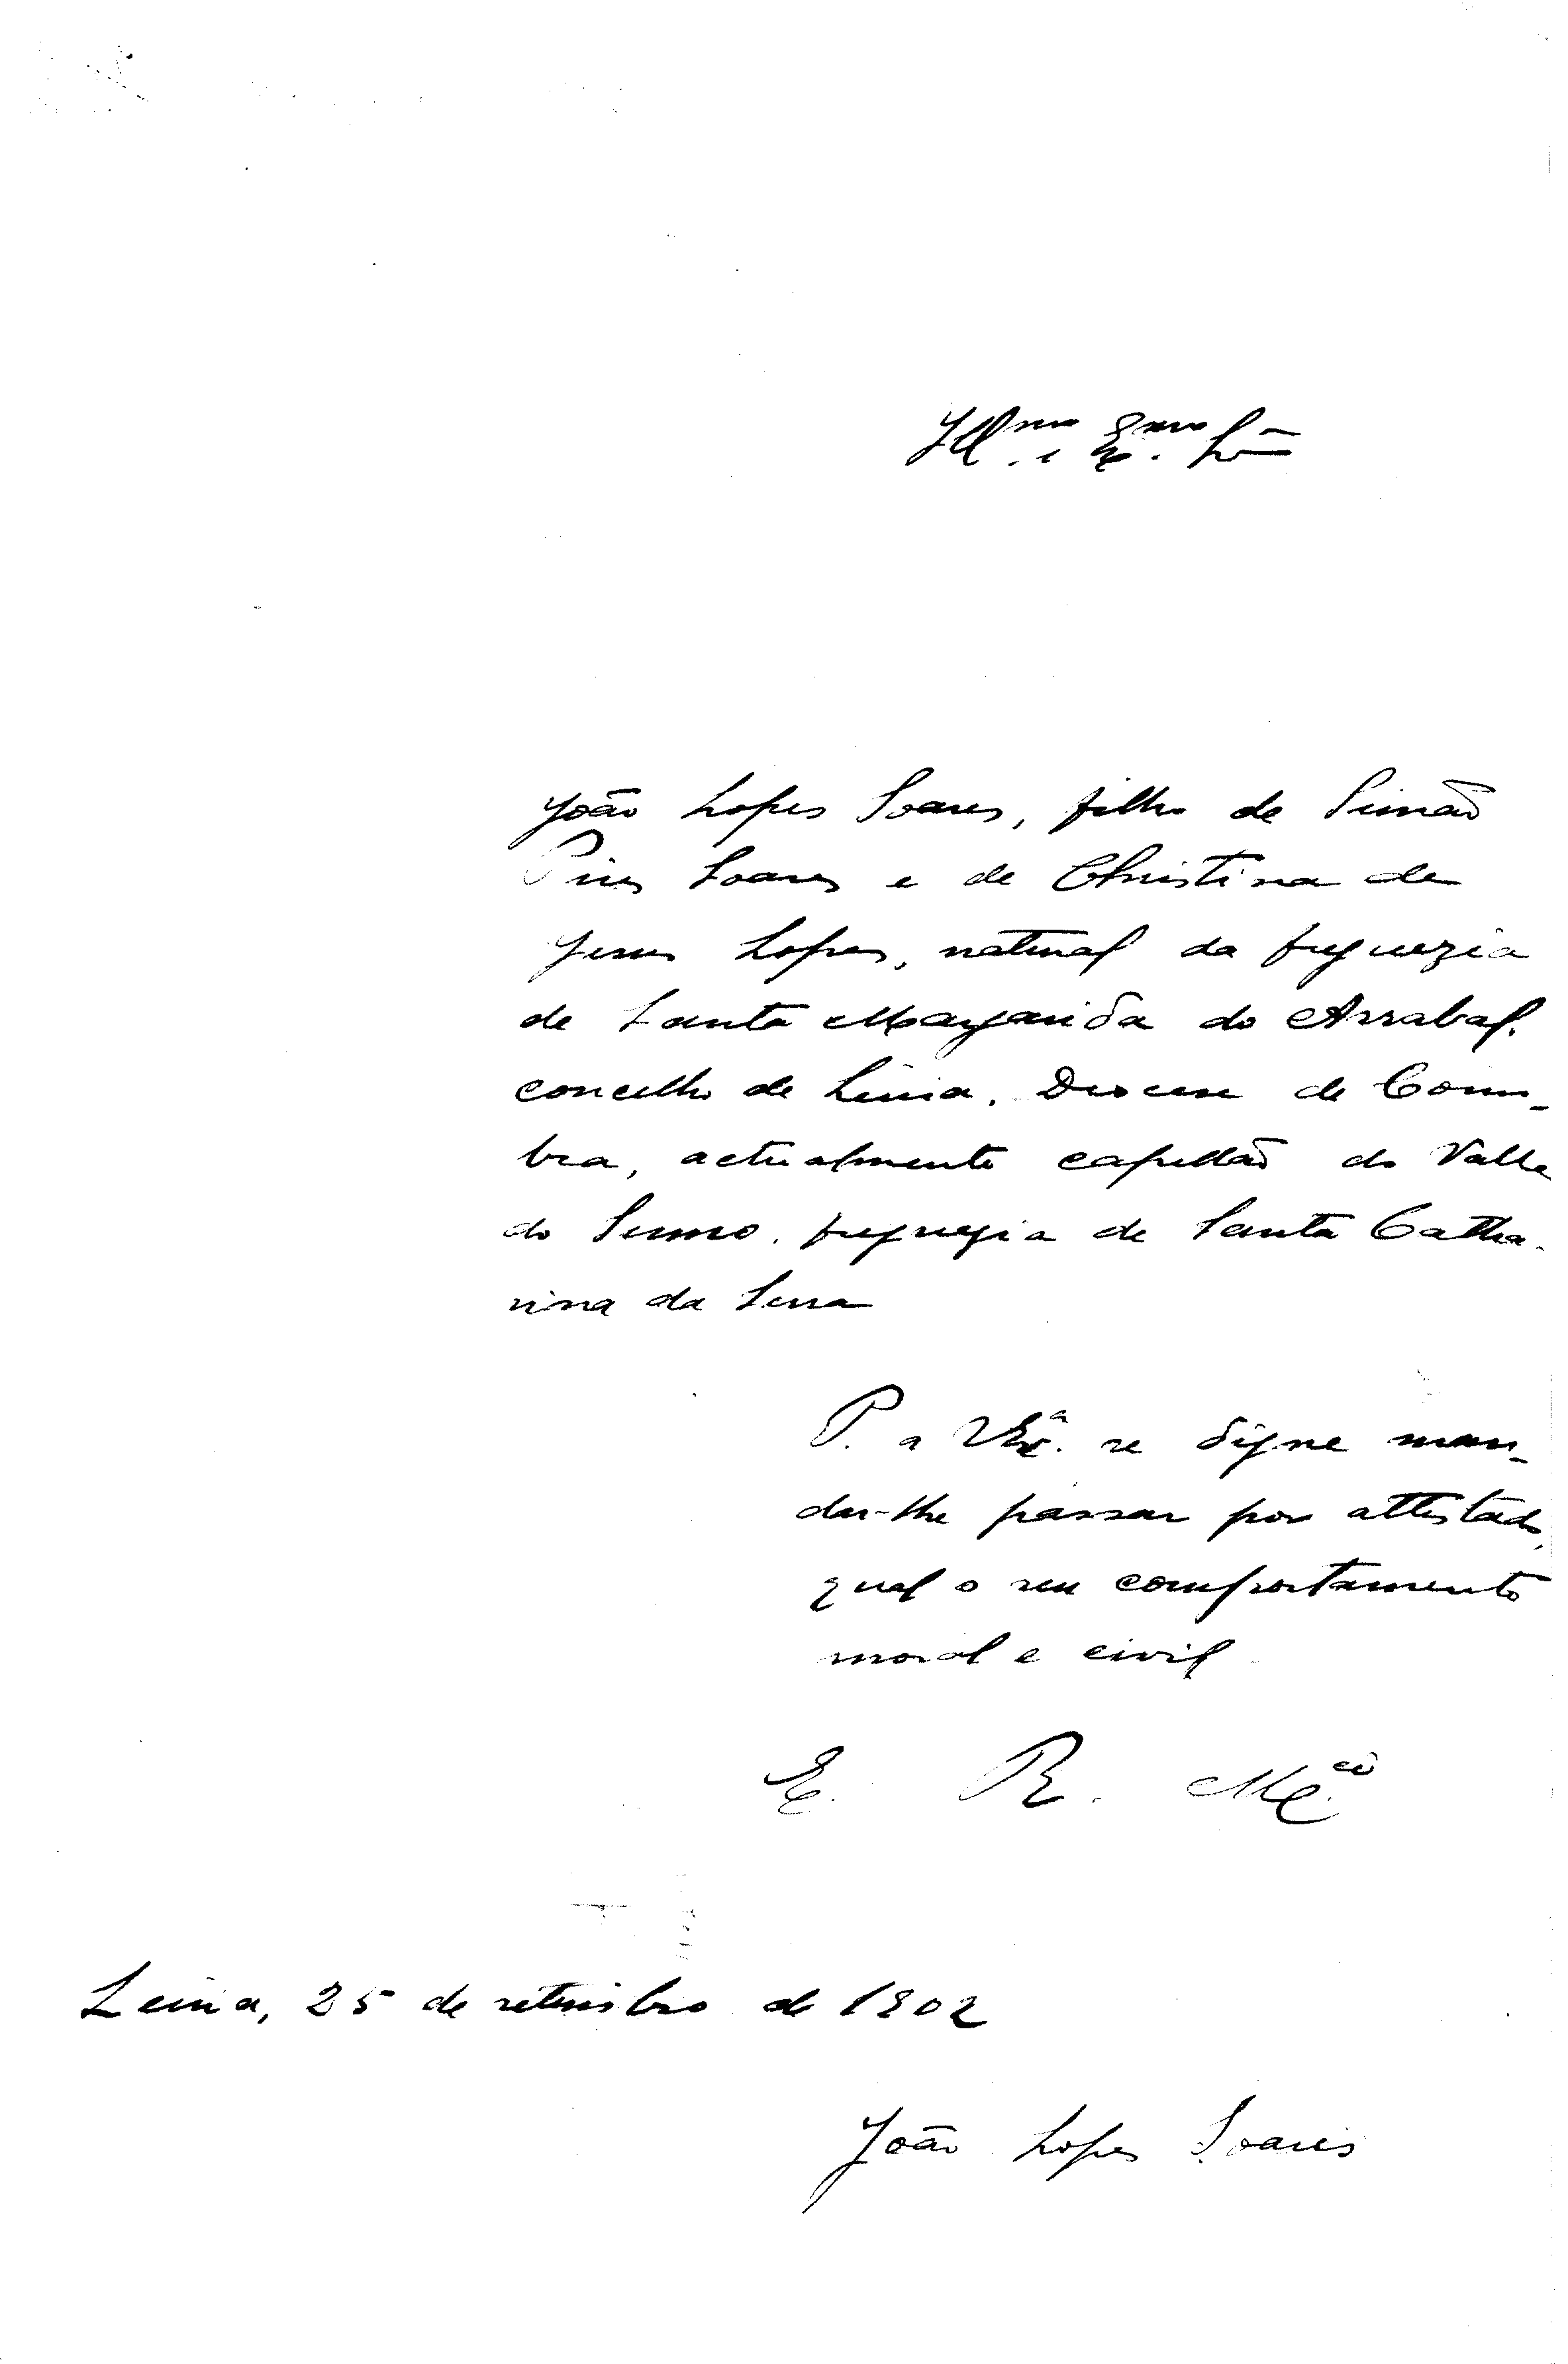 Ill.mo e Ex.mo Snr.
João Lopes Soares, filho de Simão
Pires Soares e de Christina de
Jesus Lopes, natural da freguezia
de Santa Margarida do Arrabal,
concelho de Leiria, Diocese de Coim-
bra, actualmente capellão do Valle
do Sumo, freguezia de Santa Catha-
rina da Serra
P. a V. Ex.a se digne man-
dar-lhe passar por attestado,
qual o seu comportamento
moral e civil
E. R. M.cê
Leiria, 25 de setembro de 1902
João Lopes Soares